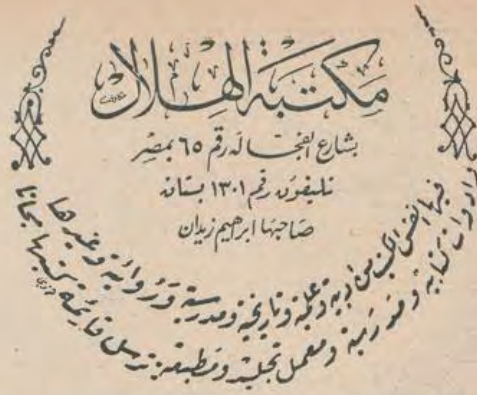 مكتبة الهلال
بشارع الفجالة رقم ٦٥ بمصر
تليفون رقم ١٣٠١ بستان
صاحبها ابرهيم زيدان
فيها انفس الكتب من ادبية وعلمية وتاريخية ومدرسية وروائية وغيرها
وادوات كتابية ومدرسية ومعمل تجليد ومطبعة. ترسل قائمة كتبها مجانا